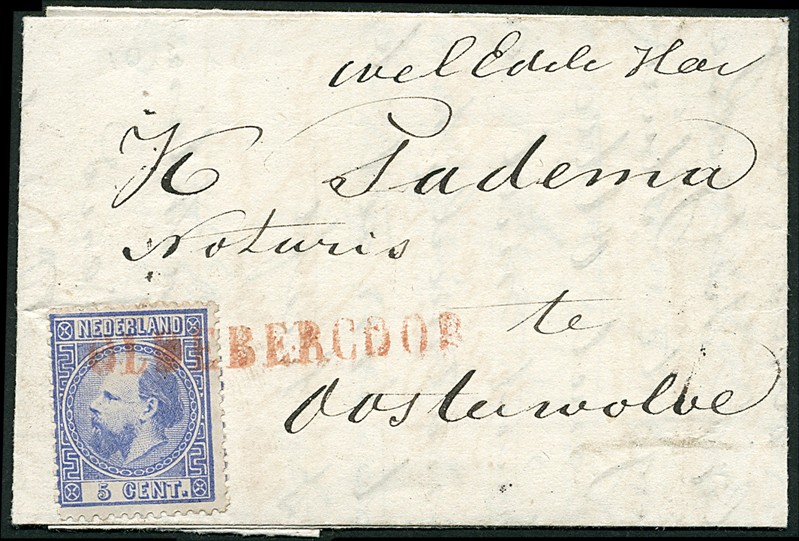 wel Edele Heer
K Padema
Noturis
te
Oosterwolde
NEDERLAND
5 CENT.